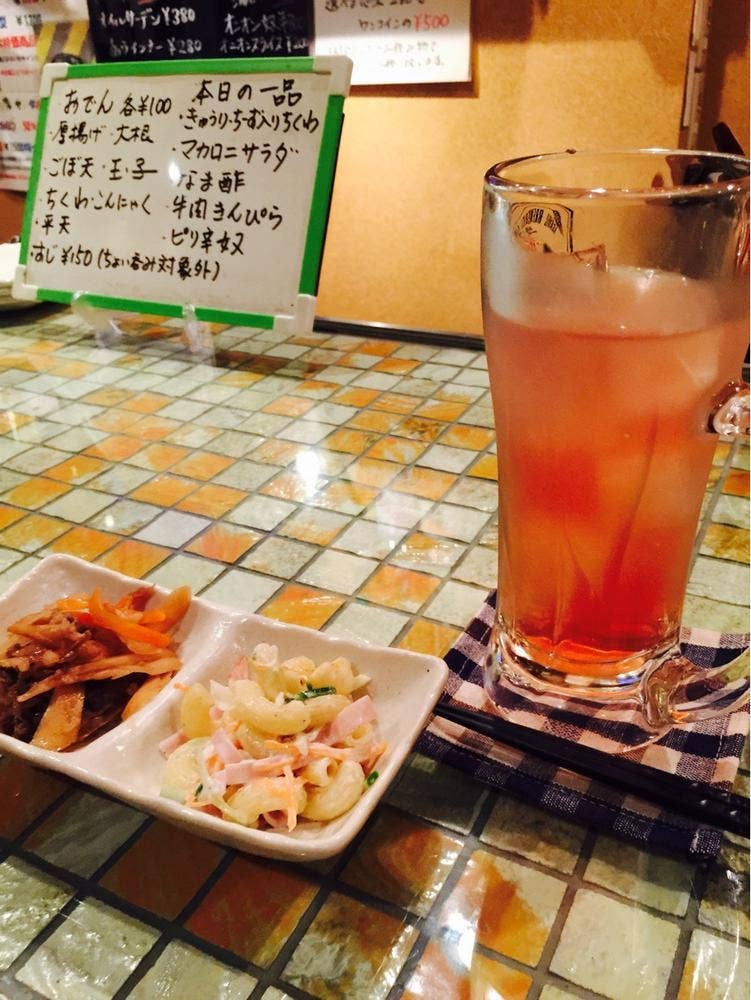 ¥380
¥280
オニオンスライス
ワンコインの¥500
おでん 各¥100
・厚揚げ・大根
ごぼ天・玉・子
ちくわ・こんにゃく
・平天
・すじ ¥150(ちょい呑み対象外)
本日の一品
・きゅうり・ちーず入りちくわ
・マカロニサラダ
なま酢
・牛肉きんぴら
・ピリ辛奴